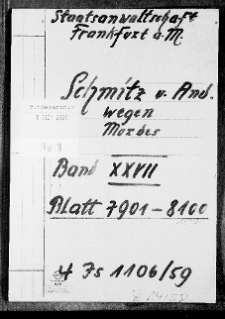 Staatsanwaltschaft
Frankfurt a.M.
Schmitz u. And.
wegen
Mordes
Band XXVII
Blatt 7901-8100
4 Js 1106/59